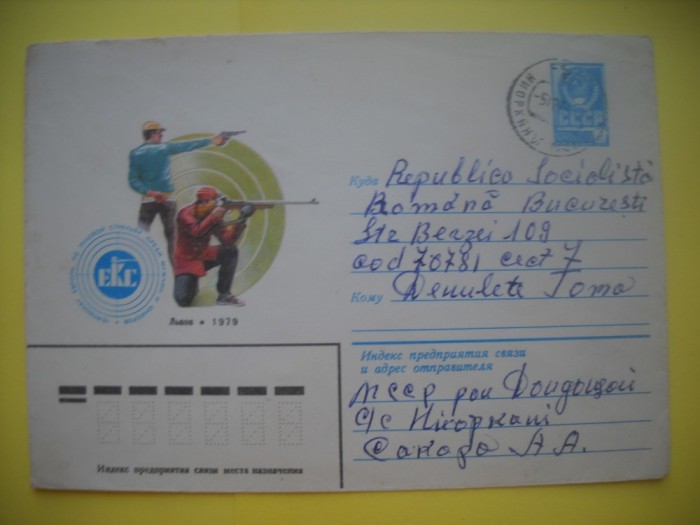 ЕКС
Львов • 1979
СССР
Куда Republica Socialistă
Română București
Str Berzei 109
cod 70781 sect 7
Кому Demulete Toma
Индекс предприятия связи
и адрес отправителя
МССР рон Дондюшой
С/С
А. А.
Индекс предприятия связи места назначения